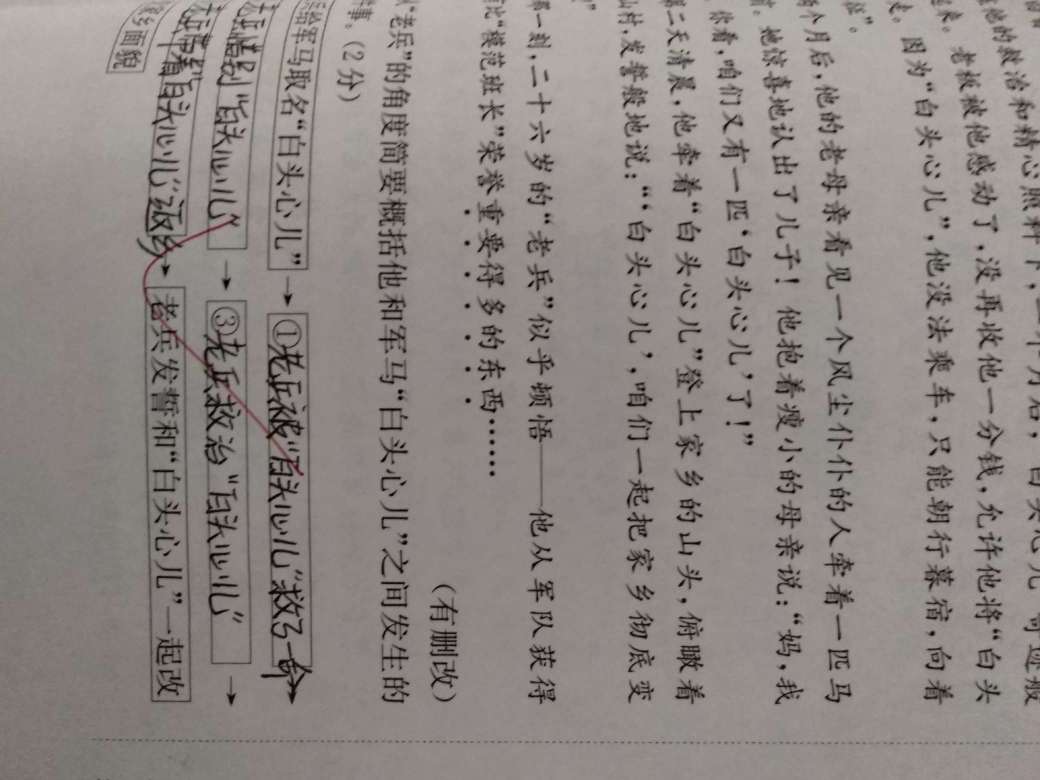 的救治和精心照料下,一个月后,“白头心儿”奇迹般
来。老板被他感动了,没再收他一分钱,允许他将“白头
走。因为“白头心儿”,他没法乘车,只能朝行暮宿,向着
”。
个月后,他的老母亲看见一个风尘仆仆的人牵着一匹马
前。她惊喜地认出了儿子!他抱着瘦小的母亲说:“妈,我
你看,咱们又有一匹‘白头心儿’了!”
第二天清晨,他牵着“白头心儿”登上家乡的山头,俯瞰着
山村,发誓般地说:“‘白头心儿’,咱们一起把家乡彻底变
”
一刻,二十六岁的“老兵”似乎顿悟——他从军队获得
比“模范班长”荣誉重要得多的东西……
(有删改)
“老兵”的角度简要概括他和军马“白头心儿”之间发生的
事。(2分)
给军马取名“白头心儿” → ①老兵被“白头心儿”救了一命 →
老兵惜别“白头心儿” → ③老兵救治“白头心儿” →
老兵牵着“白头心儿”返乡 → 老兵发誓和“白头心儿”一起改
家乡面貌